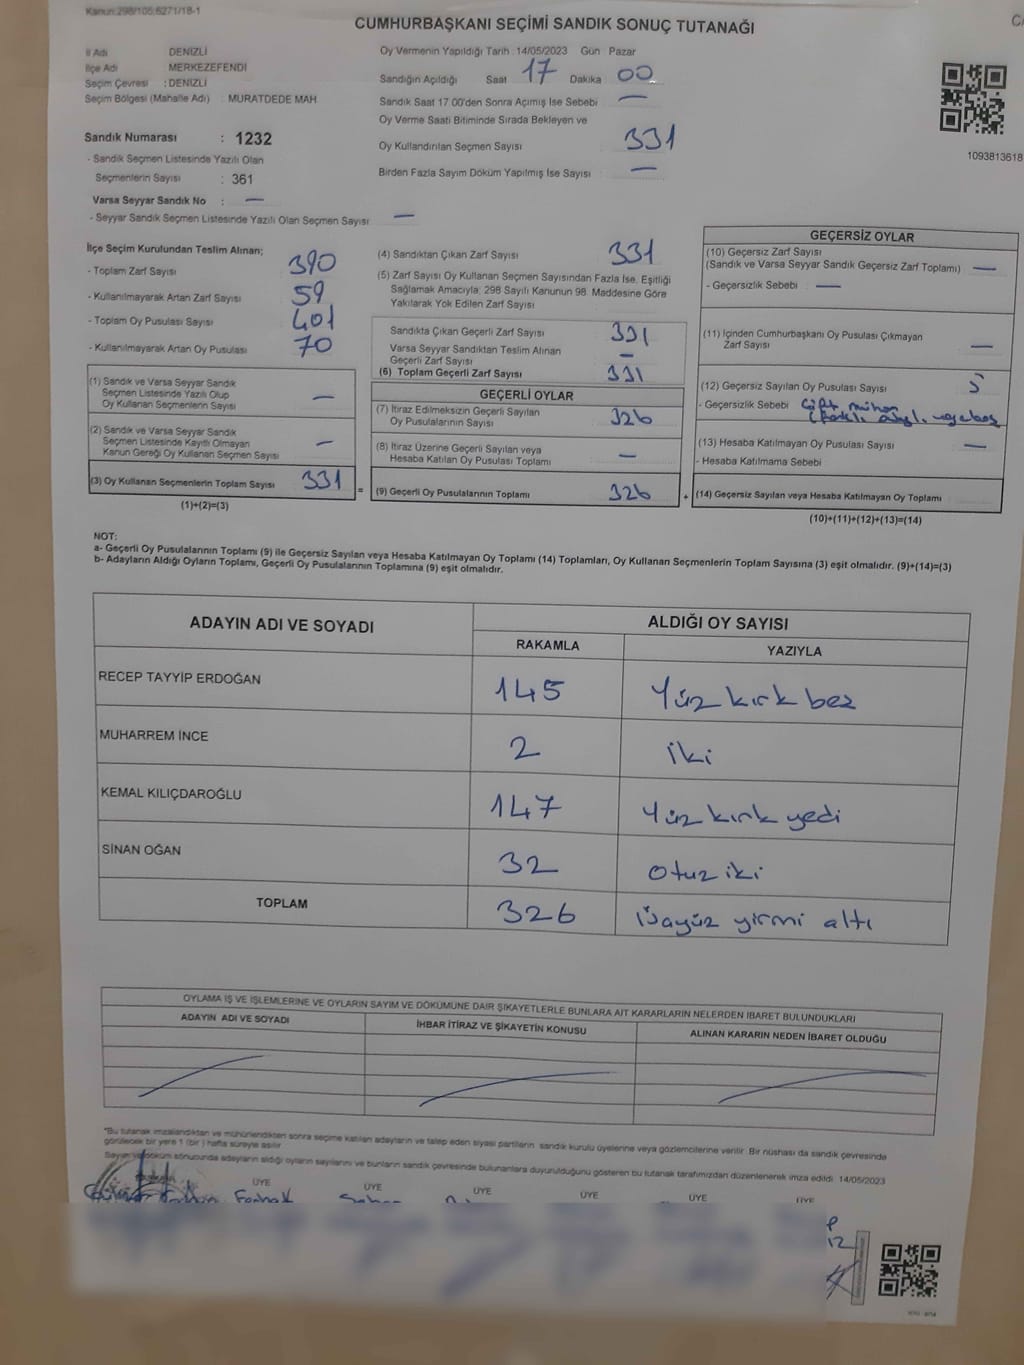 Kanun:298/105;6271/18-1
CUMHURBAŞKANI SEÇİMİ SANDIK SONUÇ TUTANAĞI
İl Adı DENİZLİ
İlçe Adı MERKEZEFENDİ
Seçim Çevresi : DENİZLİ
Seçim Bölgesi (Mahalle Adı) : MURATDEDE MAH
Sandık Numarası : 1232
- Sandık Seçmen Listesinde Yazılı Olan
Seçmenlerin Sayısı : 361
Varsa Seyyar Sandık No : —
- Seyyar Sandık Seçmen Listesinde Yazılı Olan Seçmen Sayısı —
Oy Vermenin Yapıldığı Tarih : 14/05/2023 Gün : Pazar
Sandığın Açıldığı Saat 17 Dakika 00
Sandık Saat 17.00'den Sonra Açımış İse Sebebi —
Oy Verme Saati Bitiminde Sırada Bekleyen ve
Oy Kullandırılan Seçmen Sayısı 331
Birden Fazla Sayım Döküm Yapılmış İse Sayısı —
1093813618
İlçe Seçim Kurulundan Teslim Alınan;
- Toplam Zarf Sayısı 390
- Kullanılmayarak Artan Zarf Sayısı 59
- Toplam Oy Pusulası Sayısı 401
- Kullanılmayarak Artan Oy Pusulası 70
(1) Sandık ve Varsa Seyyar Sandık
Seçmen Listesinde Yazılı Olup
Oy Kullanan Seçmenlerin Sayısı —
(2) Sandık ve Varsa Seyyar Sandık
Seçmen Listesinde Kayıtlı Olmayan
Kanun Gereği Oy Kullanan Seçmen Sayısı —
(3) Oy Kullanan Seçmenlerin Toplam Sayısı 331
(1)+(2)=(3)
=
(4) Sandıktan Çıkan Zarf Sayısı 331
(5) Zarf Sayısı Oy Kullanan Seçmen Sayısından Fazla İse, Eşitliği
Sağlamak Amacıyla; 298 Sayılı Kanunun 98. Maddesine Göre
Yakılarak Yok Edilen Zarf Sayısı
Sandıkta Çıkan Geçerli Zarf Sayısı 331
Varsa Seyyar Sandıktan Teslim Alınan
Geçerli Zarf Sayısı —
(6) Toplam Geçerli Zarf Sayısı 331
GEÇERLİ OYLAR
(7) İtiraz Edilmeksizin Geçerli Sayılan
Oy Pusulalarının Sayısı 326
(8) İtiraz Üzerine Geçerli Sayılan veya
Hesaba Katılan Oy Pusulası Toplamı —
(9) Geçerli Oy Pusulalarının Toplamı 326
+
GEÇERSİZ OYLAR
(10) Geçersiz Zarf Sayısı
(Sandık ve Varsa Seyyar Sandık Geçersiz Zarf Toplamı) —
- Geçersizlik Sebebi : —
(11) İçinden Cumhurbaşkanı Oy Pusulası Çıkmayan
Zarf Sayısı —
(12) Geçersiz Sayılan Oy Pusulası Sayısı 5
- Geçersizlik Sebebi Çift mühür
(13) Hesaba Katılmayan Oy Pusulası Sayısı —
- Hesaba Katılmama Sebebi
(14) Geçersiz Sayılan veya Hesaba Katılmayan Oy Toplamı
(10)+(11)+(12)+(13)=(14)
NOT:
a- Geçerli Oy Pusulalarının Toplamı (9) ile Geçersiz Sayılan veya Hesaba Katılmayan Oy Toplamı (14) Toplamları, Oy Kullanan Seçmenlerin Toplam Sayısına (3) eşit olmalıdır. (9)+(14)=(3)
b- Adayların Aldığı Oyların Toplamı, Geçerli Oy Pusulalarının Toplamına (9) eşit olmalıdır.
ADAYIN ADI VE SOYADI ALDIĞI OY SAYISI
RAKAMLA YAZIYLA
RECEP TAYYİP ERDOĞAN 145 Yüz kırk beş
MUHARREM İNCE 2 iki
KEMAL KILIÇDAROĞLU 147 Yüz kırk yedi
SİNAN OĞAN 32 otuz iki
TOPLAM 326 üçyüz yirmi altı
OYLAMA İŞ VE İŞLEMLERİNE VE OYLARIN SAYIM VE DÖKÜMÜNE DAİR ŞİKAYETLERLE BUNLARA AİT KARARLARIN NELERDEN İBARET BULUNDUKLARI
ADAYIN ADI VE SOYADI İHBAR İTİRAZ VE ŞİKAYETİN KONUSU ALINAN KARARIN NEDEN İBARET OLDUĞU
*Bu tutanak imzalandıktan ve mühürlendikten sonra seçime katılan adayların ve talep eden siyasi partilerin sandık kurulu üyelerine veya gözlemcilerine verilir. Bir nüshası da sandık çevresinde
görülecek bir yere 1 (bir ) hafta süreyle asılır.
Sayım ve döküm sonucunda adayların aldığı oyların sayılarını ve bunların sandık çevresinde bulunanlara duyurulduğunu gösteren bu tutanak tarafımızdan düzenlenerek imza edildi. 14/05/2023
ÜYE ÜYE ÜYE ÜYE ÜYE ÜYE